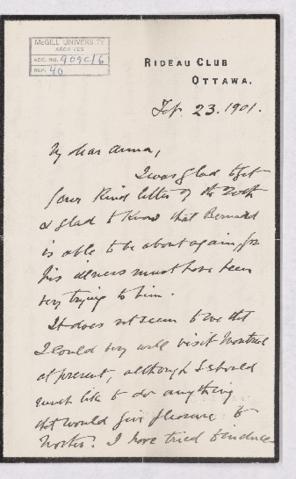 McGILL UNIVERSITY
ARCHIVES
ACC. NO. 909C/6
REF. 40
RIDEAU CLUB
OTTAWA.
Feb. 23. 1901.
My dear Anna,
I was glad to get
your kind letter of the
& glad to know that Bernard
is able to be about again, for
his illness must have been
very trying to him.
It does not seem to me that
I could very well visit Montreal
at present, although I should
much like to do anything
that would give pleasure to
I have tried to induce